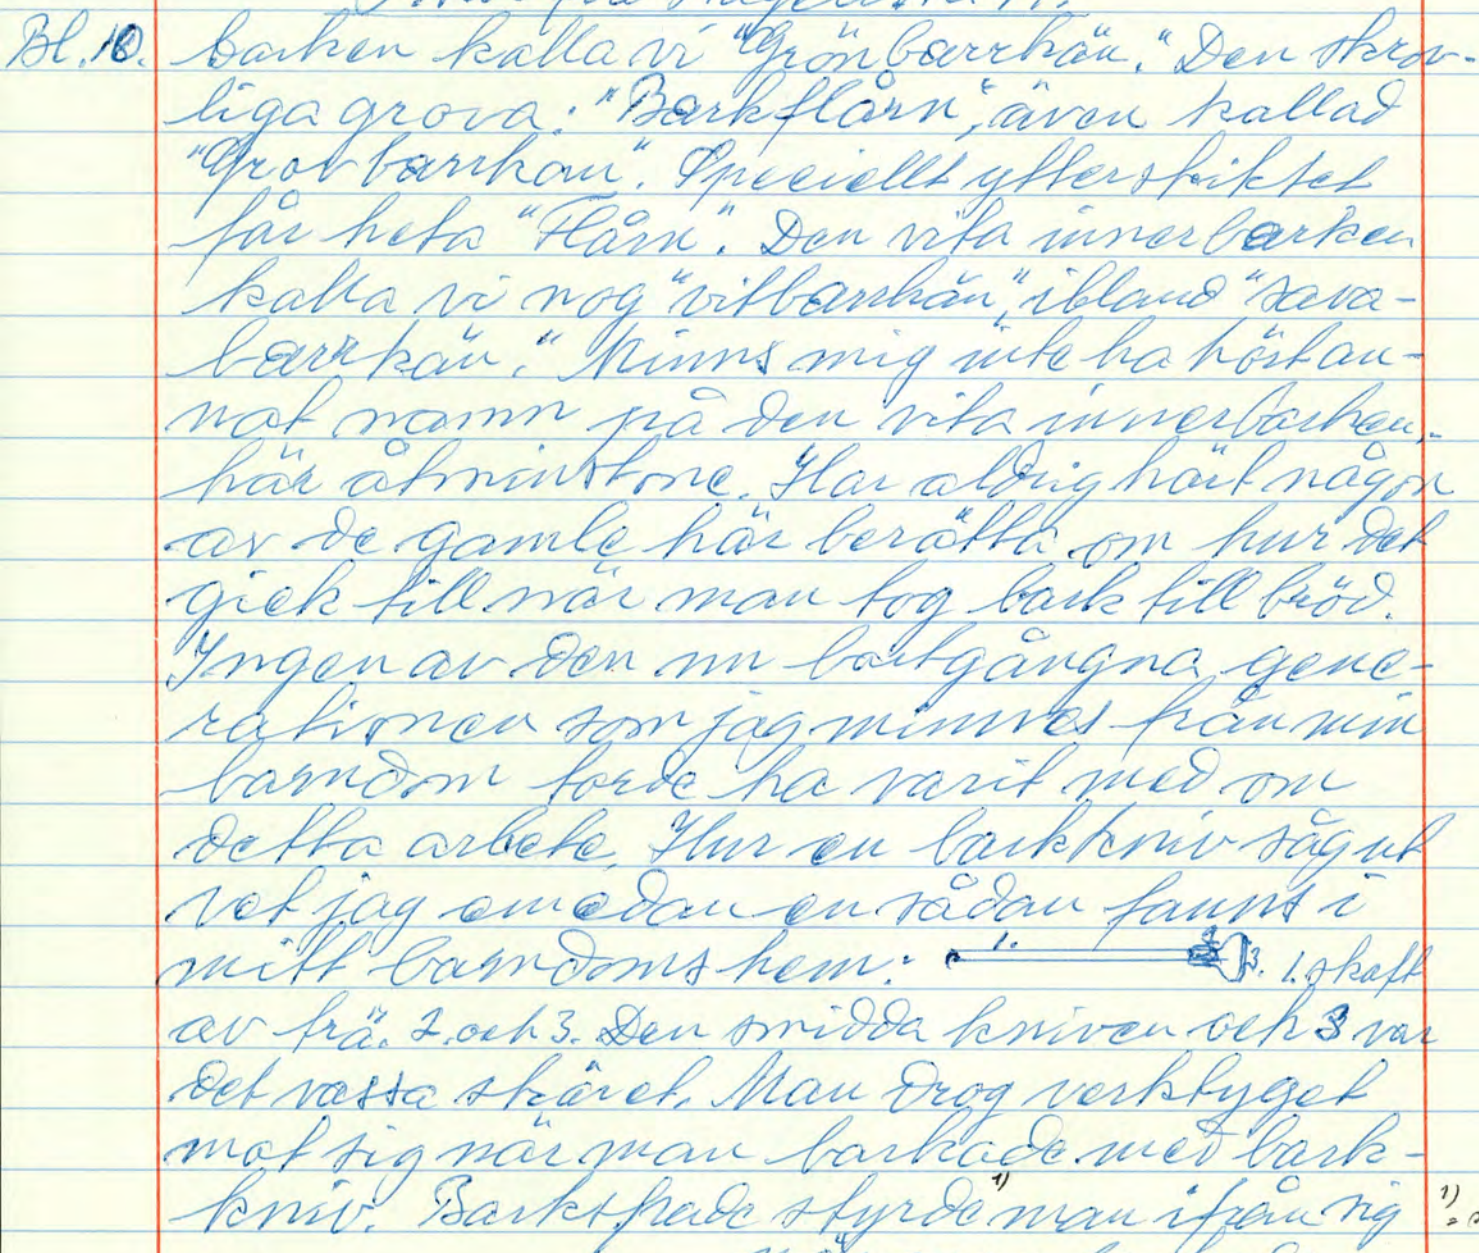 Bl. 10. barken kalla vi "Grönbarrkän". Den skrov-
liga grova: "Barkflårn", även kallad
"Grovbarrkän". Speciellt ytterskiktet
får heta "Flårn". Den vita innerbarken
kalla vi nog "vitbarrkän", ibland "sava-
barrkän". Minns mig inte ha hört an-
nat namn på den vita innerbarken,
här åtminstone. Har aldrig hört någon
av de gamle här berätta om hur det
gick till när man tog bark till bröd.
Ingen av den nu bortgångna gene-
rationen som jag minnes från min
barndom torde ha varit med om
detta arbete. Hur en barkkniv såg ut
vet jag emedan en sådan fanns i
mitt barndomshem: 1. 2 3. 1. skaft
av trä. 2. och 3. Den smidda kniven och 3 var
det vassa skäret. Man drog verktyget
mot sig när man barkade med bark-
kniv. Barkspade styrde 1) man ifrån sig
1)